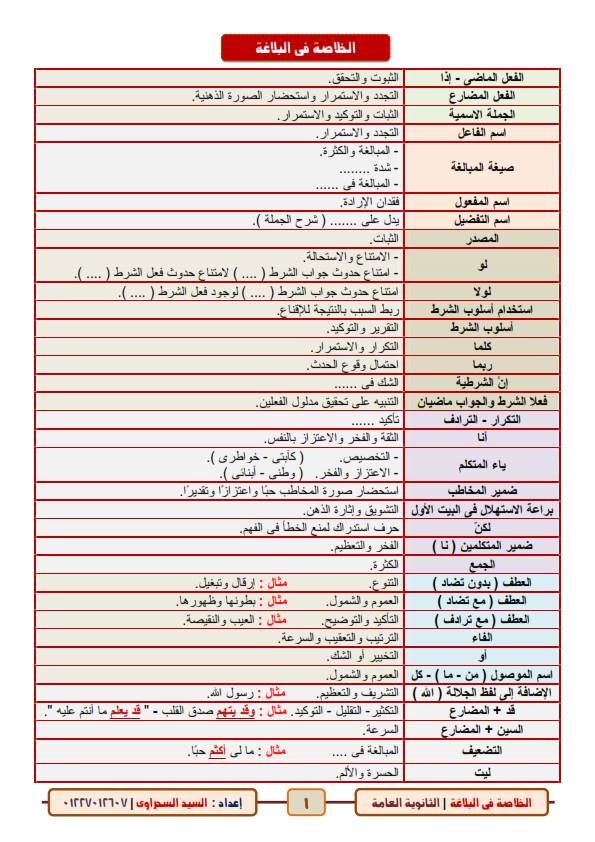 الخلاصة فى البلاغة
الفعل الماضى - إذا الثبوت والتحقق.
الفعل المضارع التجدد والاستمرار واستحضار الصورة الذهنية.
الجملة الاسمية الثبات والتوكيد والاستمرار.
اسم الفاعل التجدد والاستمرار.
صيغة المبالغة - المبالغة والكثرة.
- شدة ........
- المبالغة فى ......
اسم المفعول فقدان الإرادة.
اسم التفضيل يدل على ....... ( شرح الجملة ).
المصدر الثبات.
لو - الامتناع والاستحالة.
- امتناع حدوث جواب الشرط ( .... ) لامتناع حدوث فعل الشرط ( .... ).
لولا امتناع حدوث جواب الشرط ( .... ) لوجود فعل الشرط ( .... ).
استخدام أسلوب الشرط ربط السبب بالنتيجة للإقناع.
أسلوب الشرط التقرير والتوكيد.
كلما التكرار والاستمرار.
ربما احتمال وقوع الحدث.
إنْ الشرطية الشك فى ......
فعلا الشرط والجواب ماضيان التنبيه على تحقيق مدلول الفعلين.
التكرار - الترادف تأكيد ......
أنا الثقة والفخر والاعتزاز بالنفس.
ياء المتكلم - التخصيص. ( كآبتى - خواطرى ).
- الاعتزاز والفخر. ( وطنى - أبنائى ).
ضمير المخاطب استحضار صورة المخاطب حبًا واعتزازًا وتقديرًا.
براعة الاستهلال فى البيت الأول التشويق وإثارة الذهن.
لكنّ حرف استدراك لمنع الخطأ فى الفهم.
ضمير المتكلمين ( نا ) الفخر والتعظيم.
الجمع الكثرة.
العطف ( بدون تضاد ) التنوع. مثال : إرقال وتبغيل.
العطف ( مع تضاد ) العموم والشمول. مثال : بطونها وظهورها.
العطف ( مع ترادف ) التأكيد والتوضيح. مثال : العيب والنقيصة.
الفاء الترتيب والتعقيب والسرعة.
أو التخيير أو الشك.
اسم الموصول ( من - ما ) - كل العموم والشمول.
الإضافة إلى لفظ الجلالة ( الله ) التشريف والتعظيم. مثال : رسول الله.
قد + المضارع التكثير - التقليل - التوكيد. مثال : وقد يتهم صدق القلب - " قد يعلم ما أنتم عليه ".
السين + المضارع السرعة.
التضعيف المبالغة فى .... مثال : ما لى أكتّم حبًا.
ليت الحسرة والألم.
الخلاصة فى البلاغة | الثانوية العامة ١ إعداد : السيد السحراوى | ٠١٢٢٧٠١٢٦٠٧